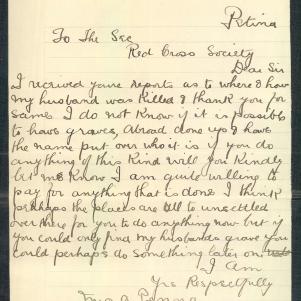 Petina
To The Sec
Red Cross Society
Dear Sir
I received youre reports as to where & how
my husband was killed I thank you for
same I do not know if it is possible
to have graves, Abroad done up & have
the name put over who it is if you do
anything of this Kind will you Kindly
let me Know I am quite willing to
pay for anything that is done I think
perhaps the places are all to unsettled
over there for you to do anything now but if
you could only find my husbands grave you
could perhaps do something later on
I Am
Yrs Respectfully